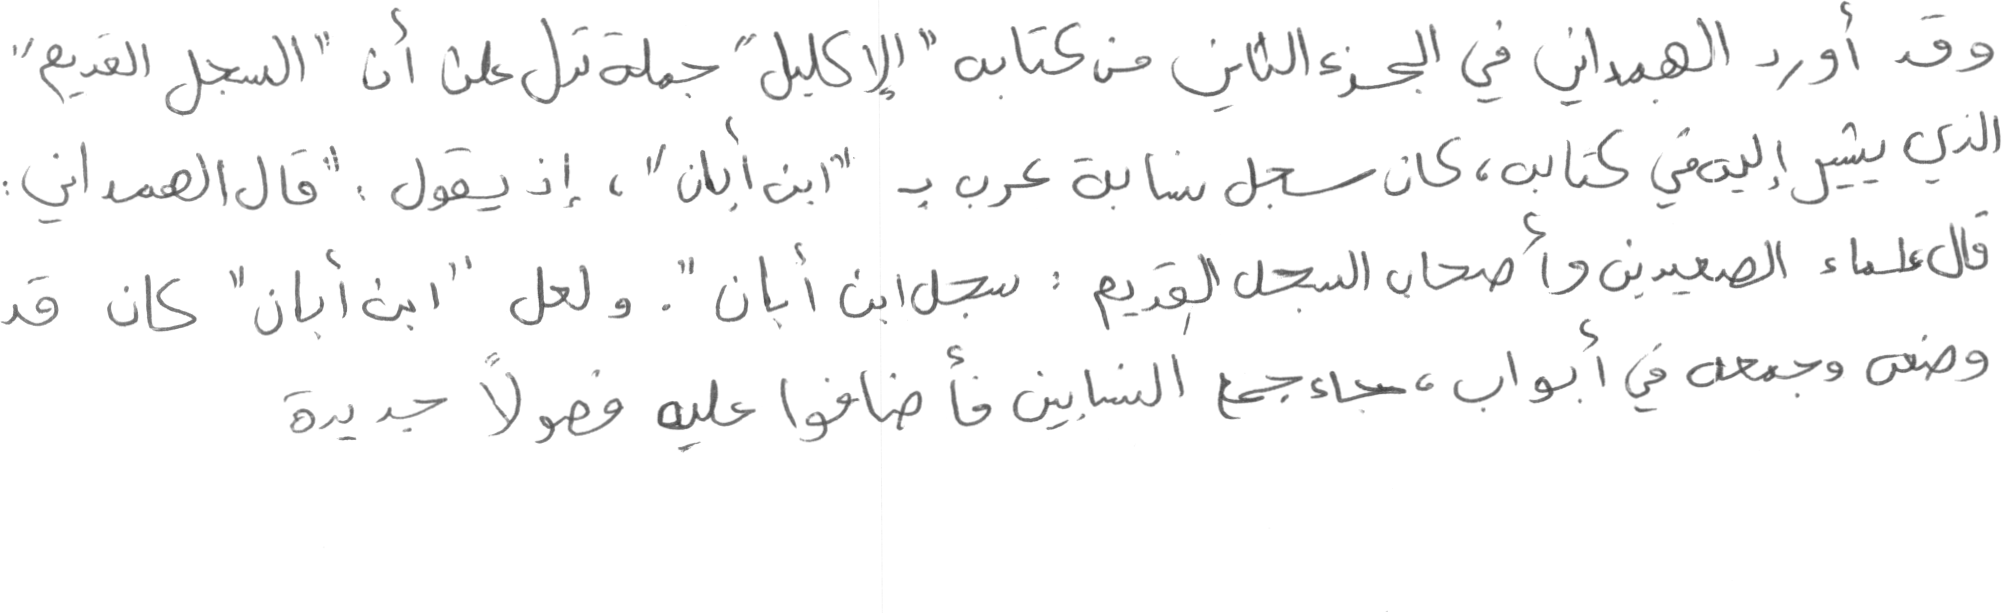 وقد أورد الهمداني في الجزء الثاني من كتابه "الإكليل" جملة تدل على أن "السجل القديم"
الذي يشير إليه في كتابه، كان سجل نسابة عرب بـ "ابن أبان"، إذ يقول: "قال الهمداني:
قال علماء الصعيديين وأصحاب السجل القديم: سجل ابن أبان". ولعل "ابن أبان" كان قد
وضعه وجمعه في أبواب، جاء جمع النسابين فأضافوا عليه فصولاً جديدة